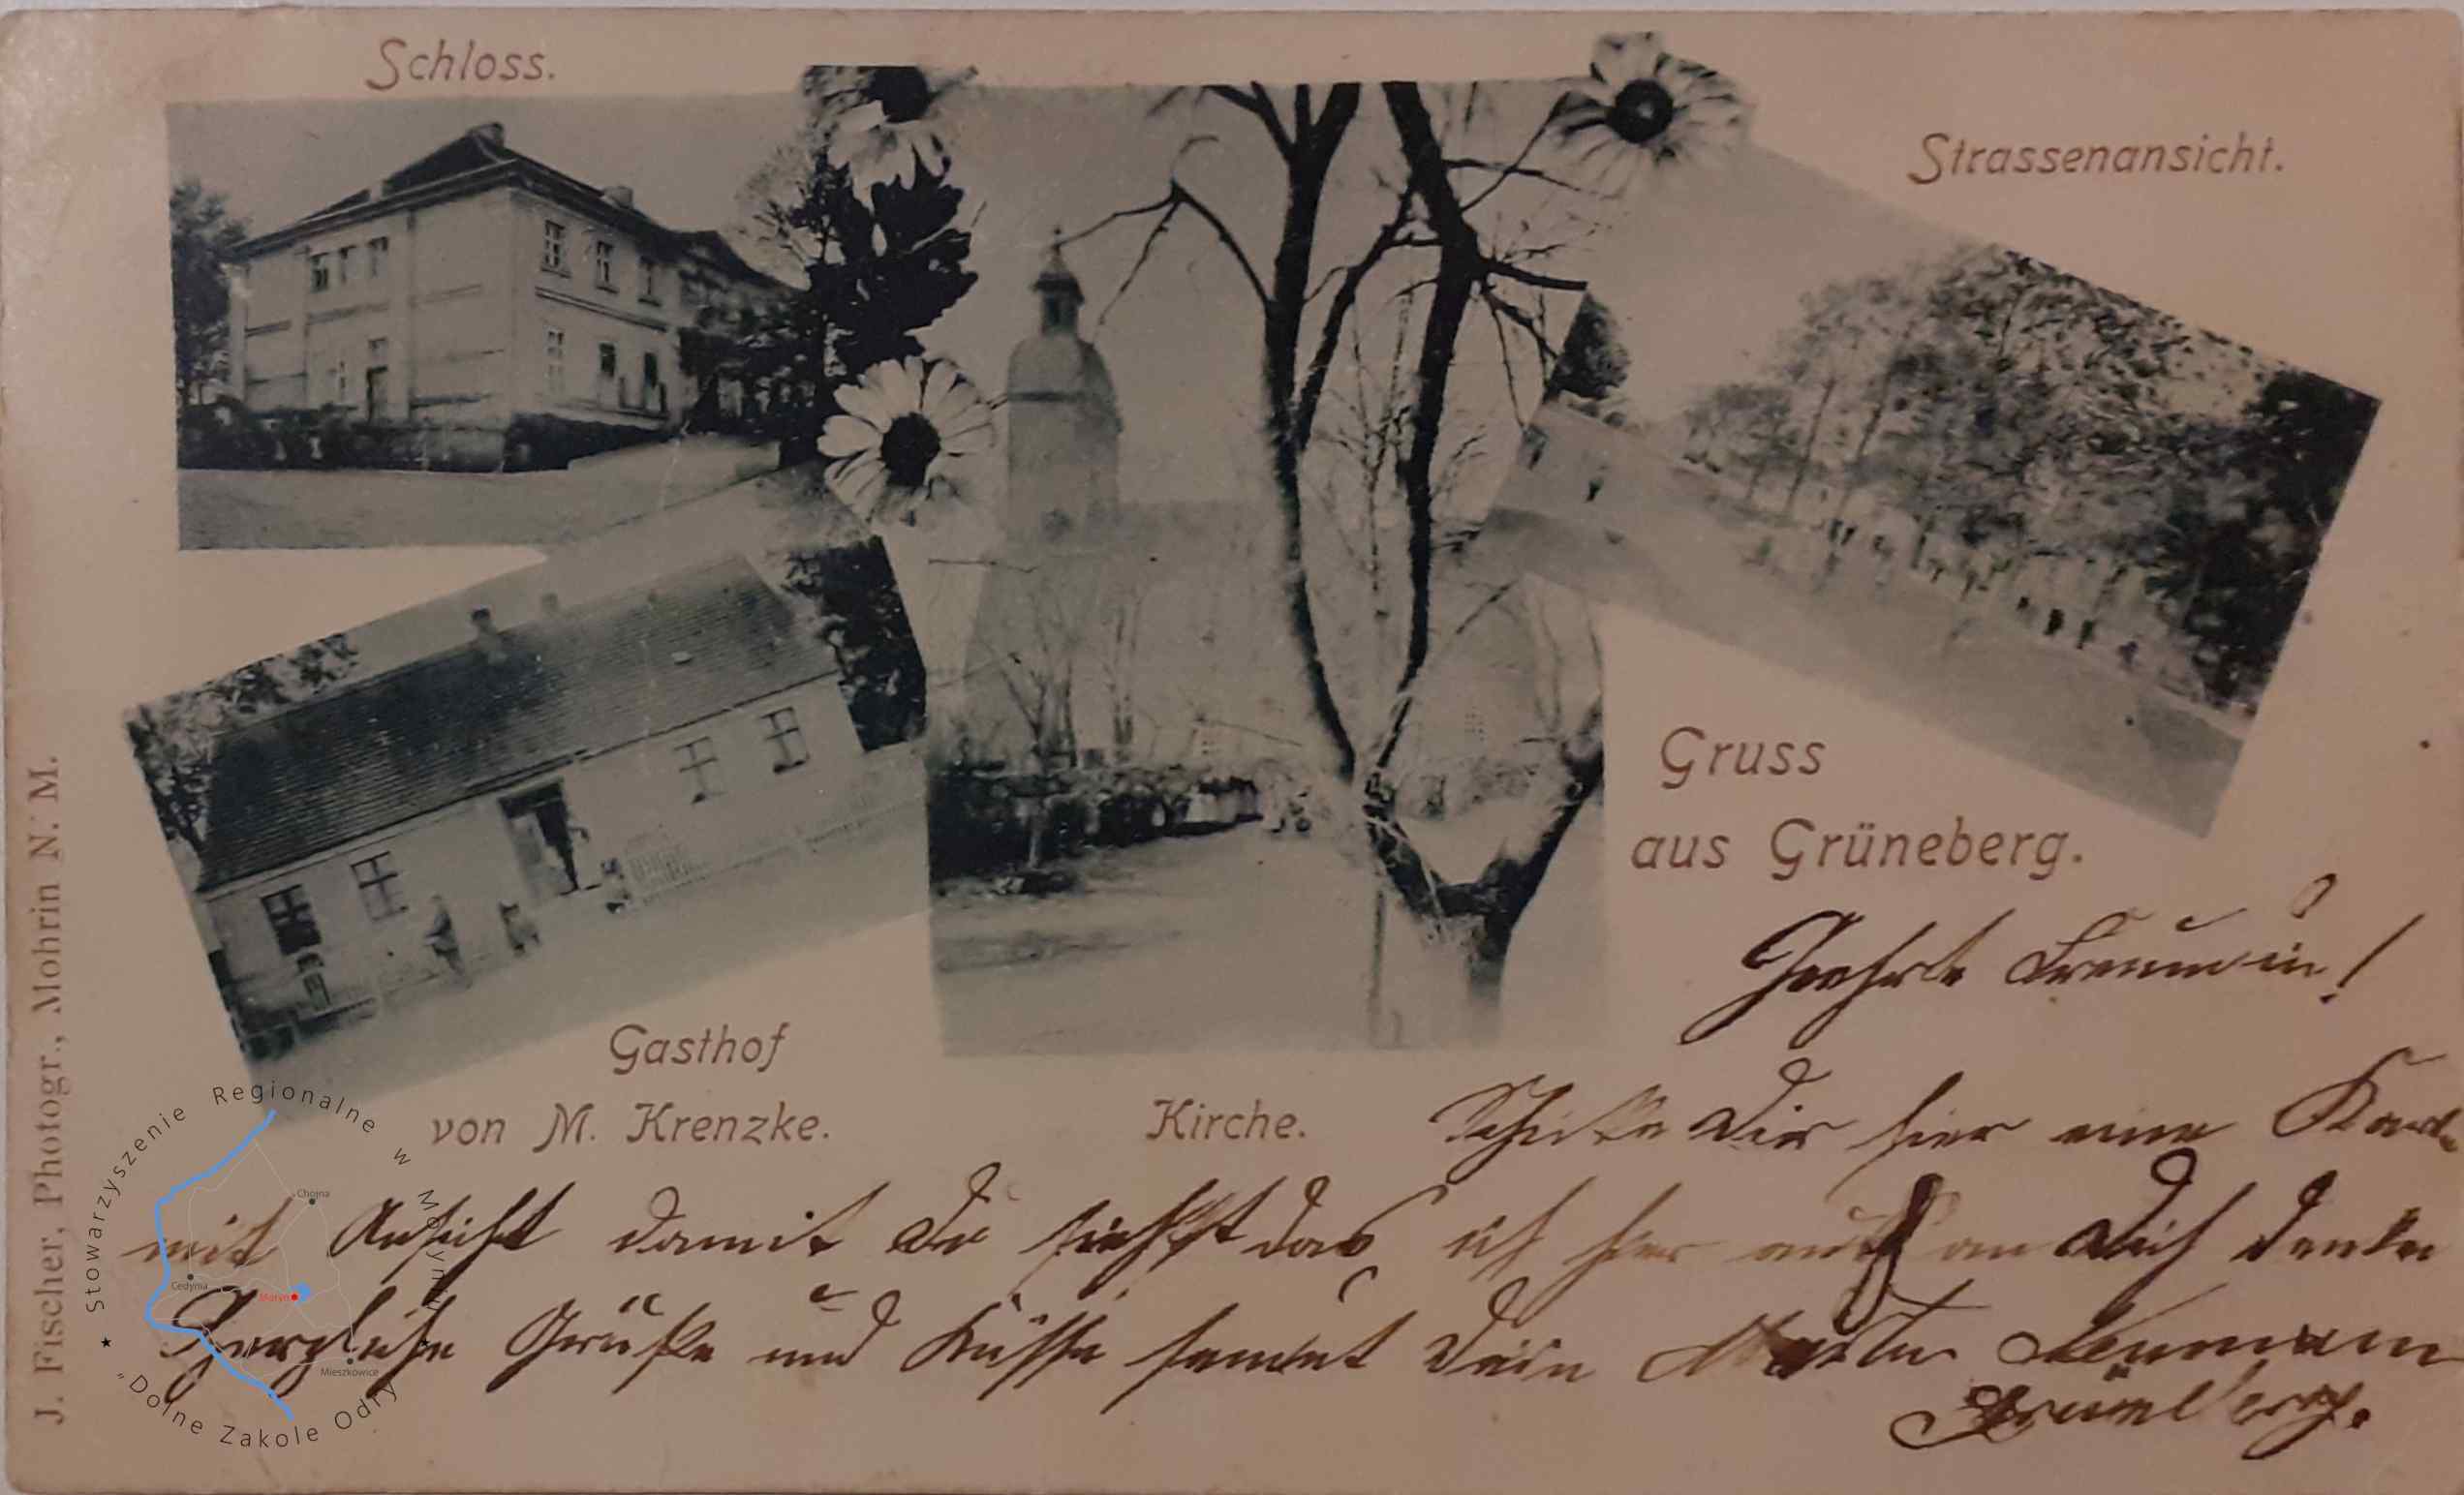 Schloss.
Strassenansicht.
Gruss
aus Grüneberg.
Gasthof
von M. Krenzke.
Kirche.
J. Fischer, Photogr., Mohrin N. M.
Geehrte Freundin!
Schicke Dir hier eine Karte
mit Ansicht damit Du siehst das ich hier auch an Dich denke
Herzliche Grüße und Küsse sendet Dein Neumann
Grüneberg.
Stowarzyszenie Regionalne w Moryniu
"Dolne Zakole Odry"
Chojna
Cedynia
Moryń
Mieszkowice